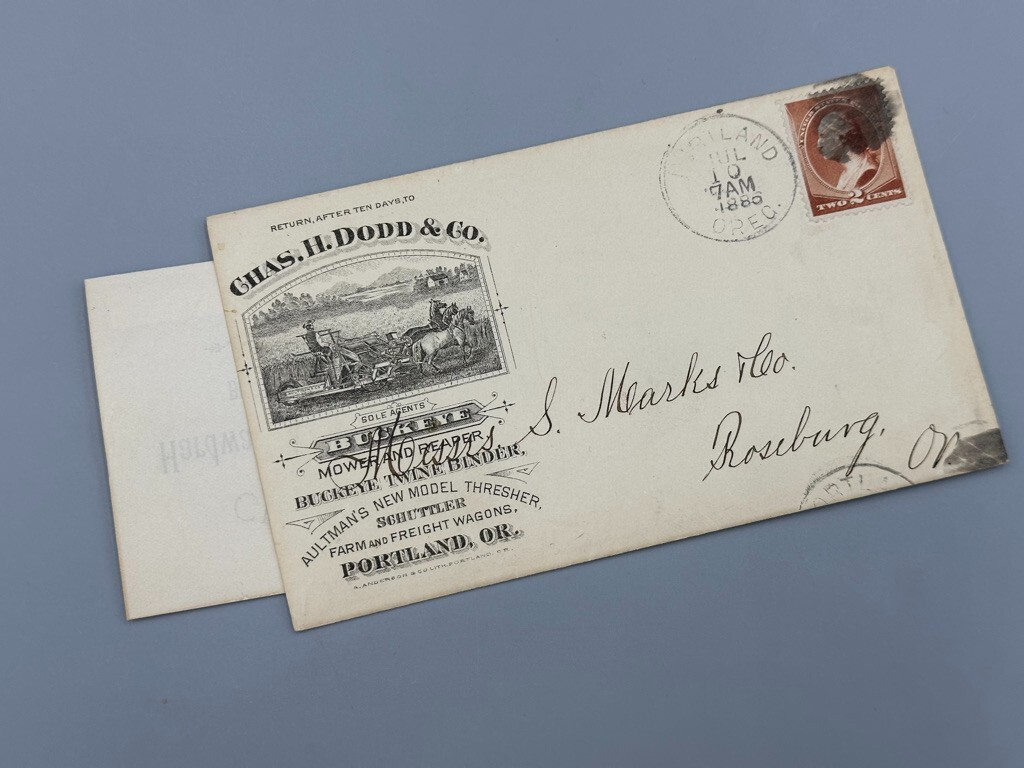 RETURN, AFTER TEN DAYS, TO
CHAS. H. DODD & CO.
SOLE AGENTS
BUCKEYE
MOWER AND REAPER,
BUCKEYE TWINE BINDER,
AULTMAN'S NEW MODEL THRESHER,
SCHUTTLER
FARM AND FREIGHT WAGONS,
PORTLAND, OR.
A. ANDERSON & CO. LITH. PORTLAND, OR.
PORTLAND
JUL
10
7AM
1886
OREG.
UNITED STATES
TWO 2 CENTS
Messrs. S. Marks & Co.
Roseburg,
Or
PORTL
Hardwa